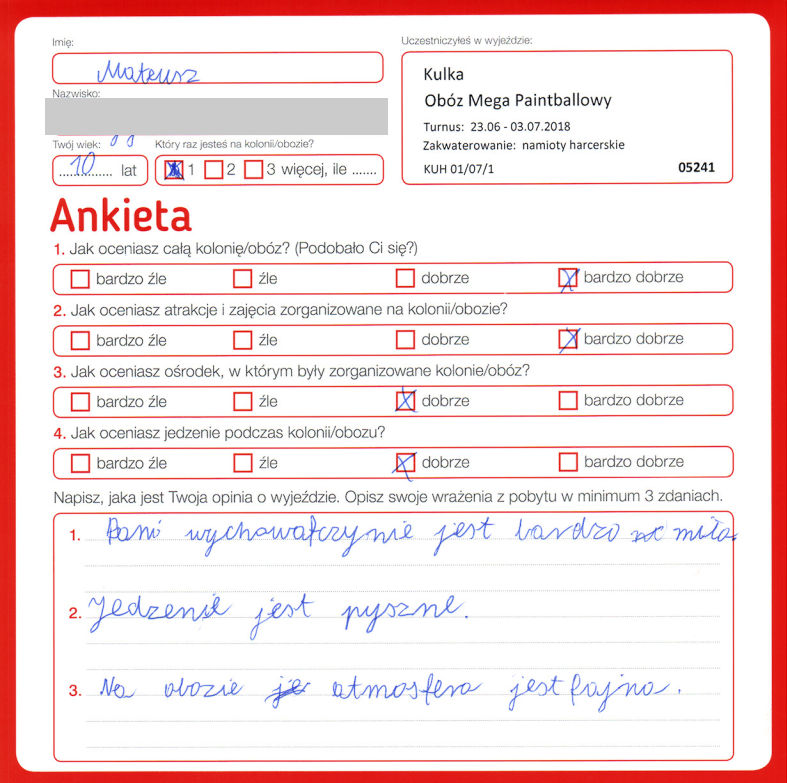 Imię:
Mateusz
Nazwisko:
Twój wiek:
10 lat
Który raz jesteś na kolonii/obozie?
1 2 3 więcej, ile .......
Uczestniczyłeś w wyjeździe:
Kulka
Obóz Mega Paintballowy
Turnus: 23.06 - 03.07.2018
Zakwaterowanie: namioty harcerskie
KUH 01/07/1 05241
Ankieta
1. Jak oceniasz całą kolonię/obóz? (Podobało Ci się?)
bardzo źle źle dobrze bardzo dobrze
2. Jak oceniasz atrakcje i zajęcia zorganizowane na kolonii/obozie?
bardzo źle źle dobrze bardzo dobrze
3. Jak oceniasz ośrodek, w którym były zorganizowane kolonie/obóz?
bardzo źle źle dobrze bardzo dobrze
4. Jak oceniasz jedzenie podczas kolonii/obozu?
bardzo źle źle dobrze bardzo dobrze
Napisz, jaka jest Twoja opinia o wyjeździe. Opisz swoje wrażenia z pobytu w minimum 3 zdaniach.
1. Pani wychowawczynie jest bardzo miła.
2. Jedzenie jest pyszne.
3. Na obozie atmosfera jest fajna.